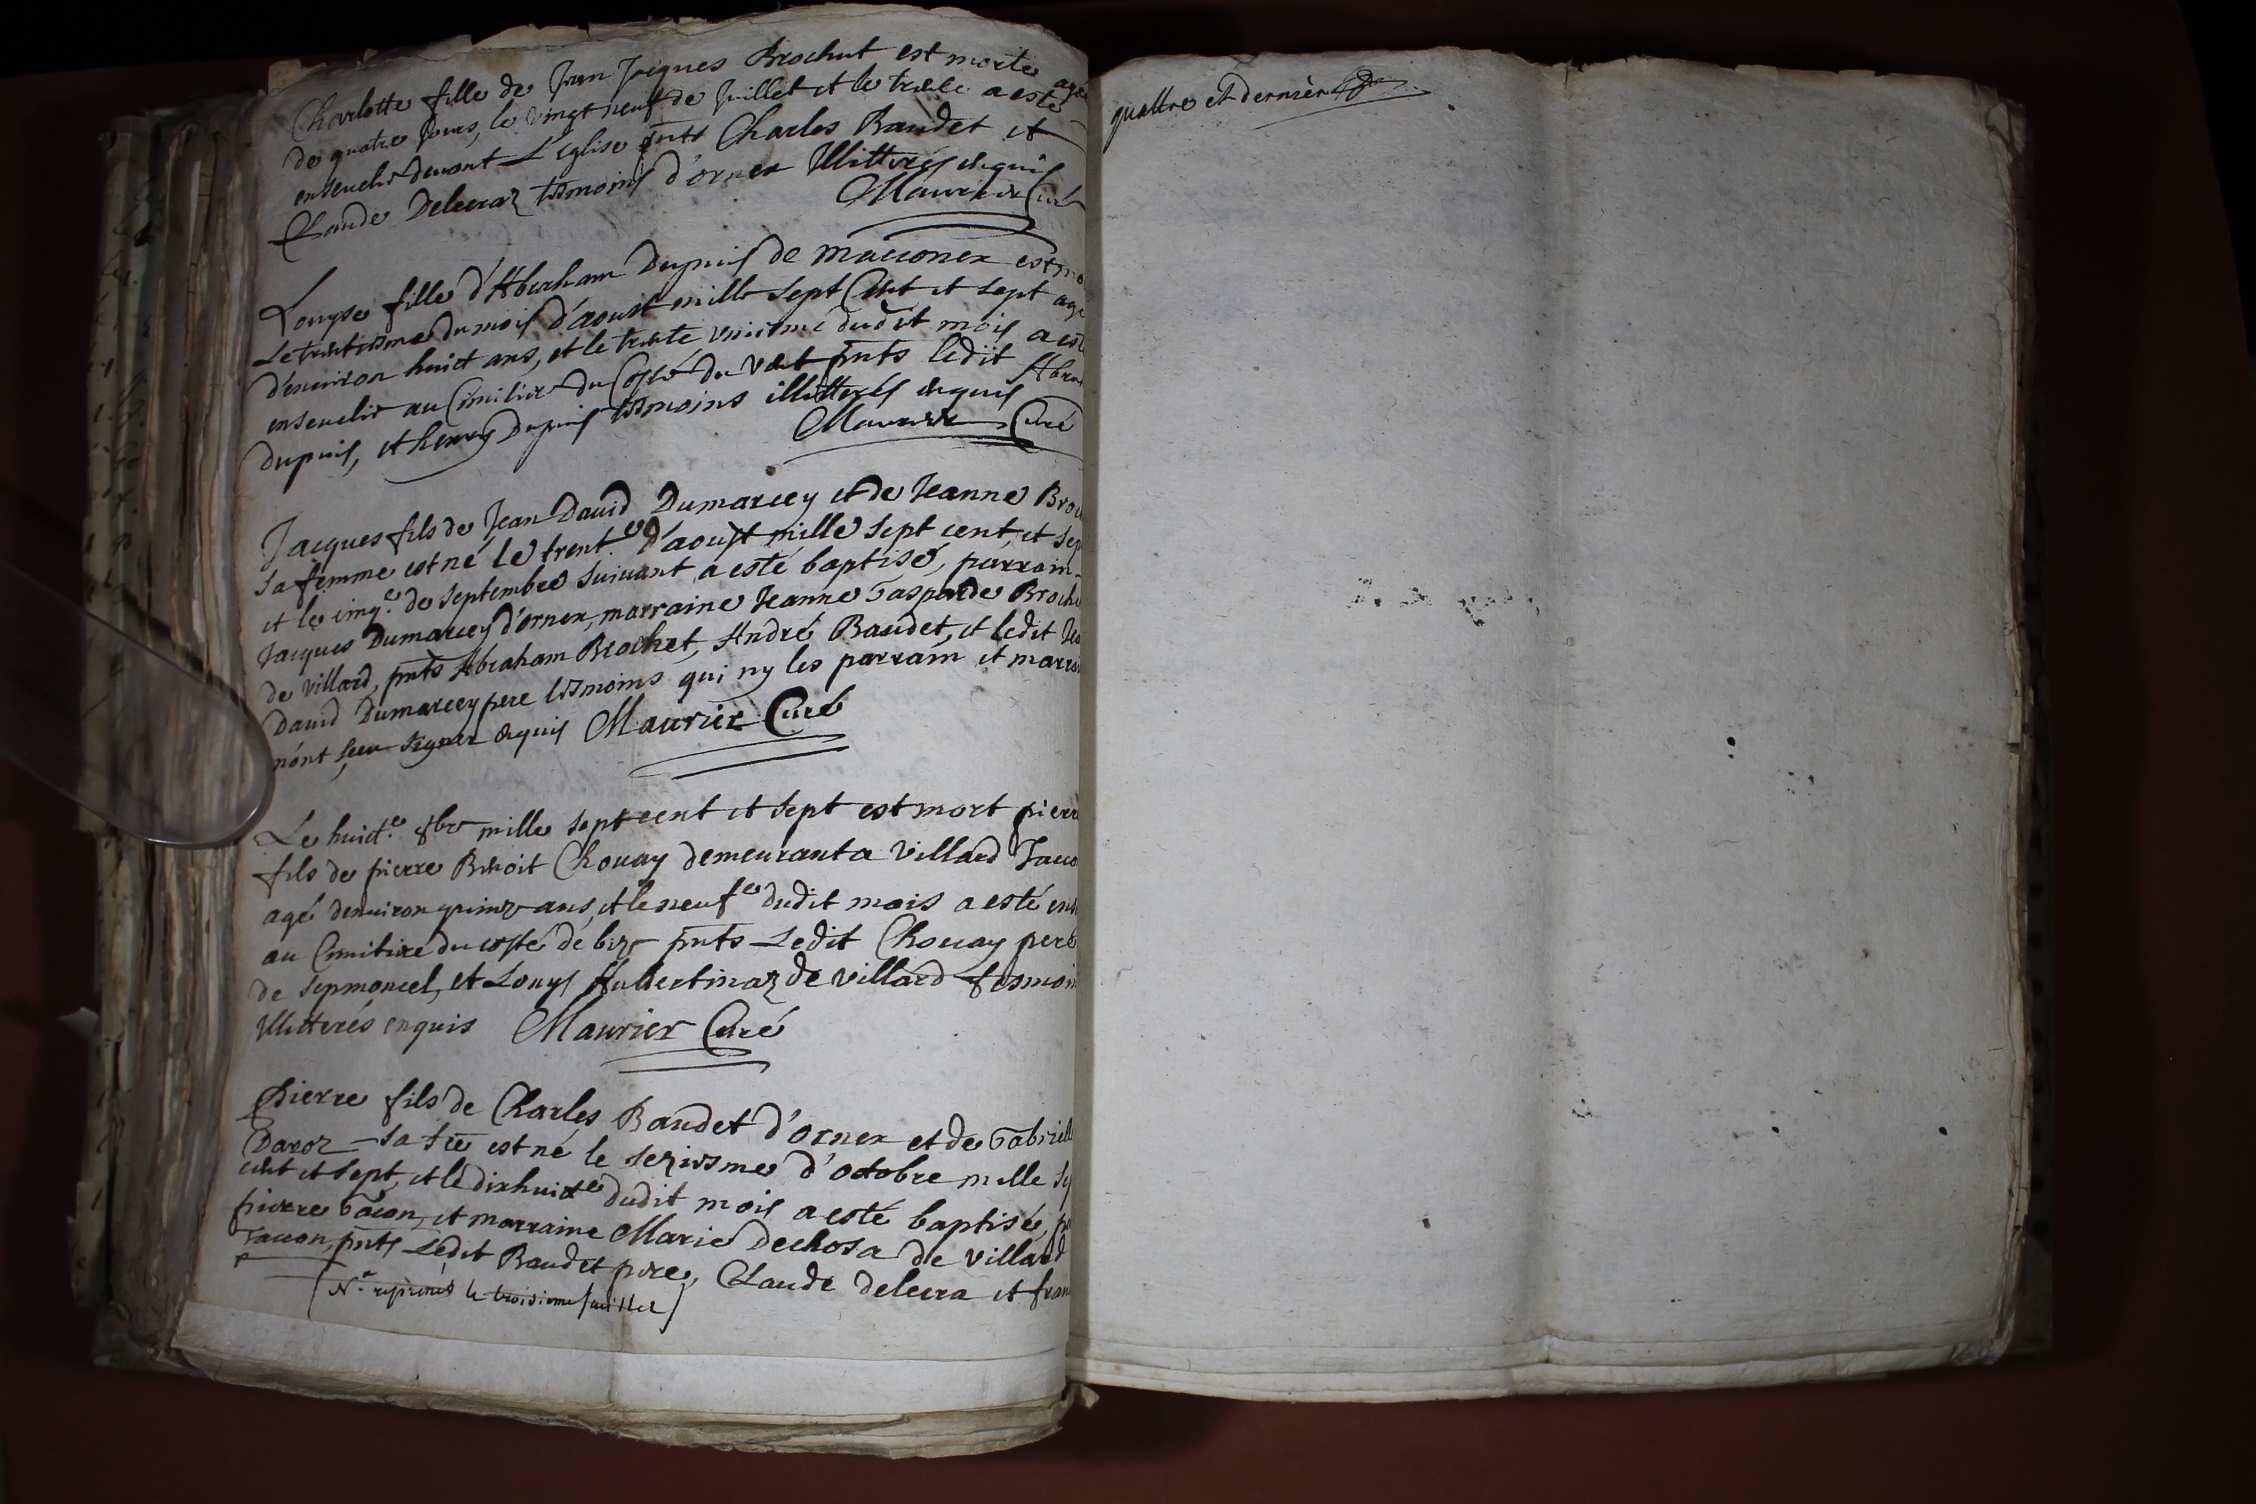 Charlotte fille de Jean Jacques Brochut est morte agée
de quatre jours, le vingt neuf de juillet et le trente a esté
ensevelie devant L'Eglise pnts Charles Baudet et
Claude Delecraz tesmoins d'ornex illitterés enquis
Maurier Curé
Louyse fille d'Abraham Dupuis de maconex est mo
Le trentiesme du mois d'aoust mille sept Cent et sept agé
d'environ huict ans, et le trente uniesme dudit mois a esté
ensevelie au Cimitiere du Costé du vent pnts ledit Abra
dupuis, et henry Dupuis tesmoins illitterés enquis
Maurier Curé
Jacques fils de Jean David Dumarcey et de Jeanne Broc
sa femme est né le trent.e d'aoust mille sept cent, et sep
et le cinq.e de septembre suivant a esté baptisé, parrain
Jacques Dumarcey d'ornex, marraine Jeanne Gasparde Broch
de villard, pnts Abraham Brochet, André Baudet, et ledit Jea
David Dumarcey pere tesmoins qui ny les parrain et marrai
n'ont sceu signer enquis Maurier Curé
Le huict.e 8bre mille sept cent et sept est mort pierre
fils de pierre Benoit Chouay demeurant a villard Tacco
agé denviron quinze ans, et le neuf.e dudit mois a esté ens
au Cimitiere du costé de bize pnts Ledit Chouay pere
de sepmoncel, et Louys Aubertinaz de villard tesmoin
illitterés enquis Maurier Curé
Pierre fils de Charles Baudet d'ornex et de Gabrielle
Davoz sa fe est né le seziesme d'octobre mille se
cent et sept, et le dixhuict.e dudit mois a esté baptisé, pa
pierre bacon, et marraine Marie Dechosa de villard
Taccon, pnts Ledit Baudet pere, Claude delecra et fran
(N.a reprenés le troisieme feuillet)
quattre et dernier